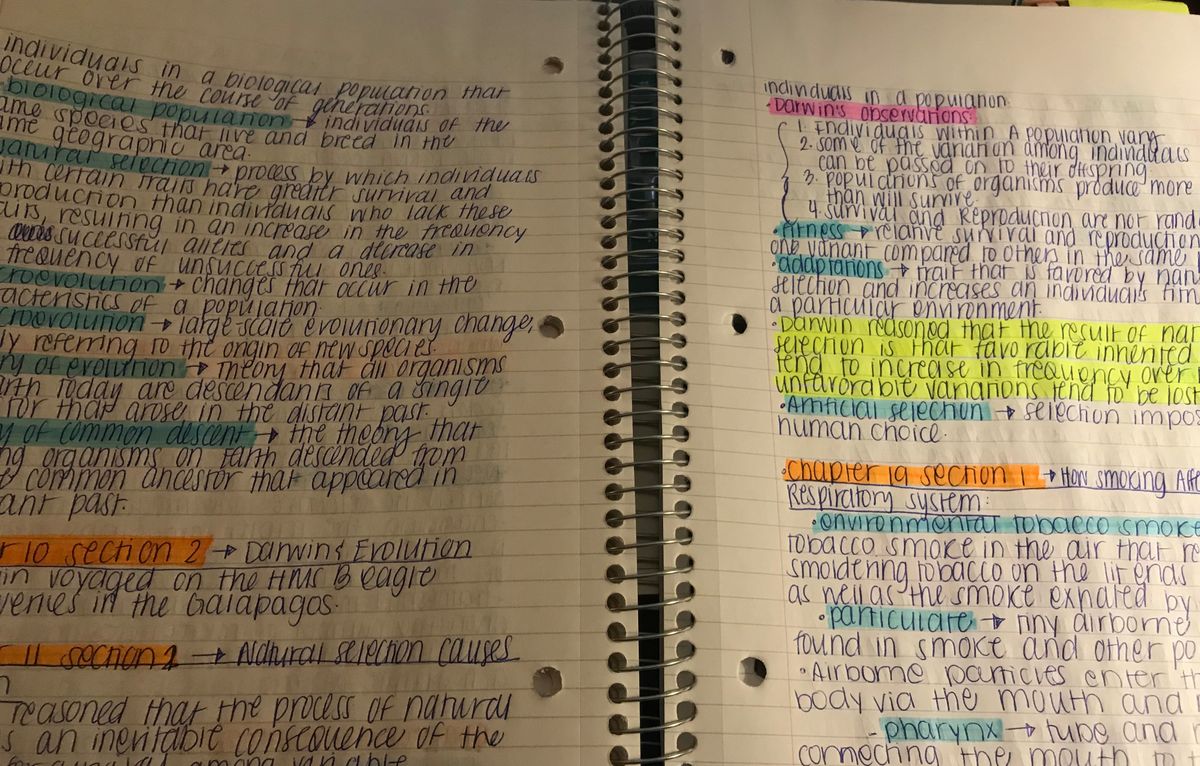 individuals in a biological population that
occur over the course of generations.
biological population → individuals of the
ame species that live and breed in the
ame geographic area.
natural selection → process by which individuals
ith certain traits have greater survival and
production than individuals who lack these
resulting in an increase in the frequency
successful alleles and a decrease in
frequency of unsuccessful ones.
croevolution → changes that occur in the
acteristics of a population.
croevolution → large-scale evolutionary change,
ly referring to the origin of new species.
ry of evolution → theory that all organisms
arth today are descendants of a single
tor that arose in the distant past.
y of common descent → the theory that
ng organisms on Earth descended from
e common ancestor that appeared in
ant past.
r 10 section 2 → Darwin & Evolution
in voyaged on the HMS Beagle
venies in the Galapagos.
r 11 section 1 → Natural selection causes
n
reasoned that the process of natural
s an inevitable consequence of the
among variable
individuals in a population.
• Darwin's observations:
1. Individuals within A population vary
2. some of the variation among individuals
can be passed on to their offspring.
3. populations of organisms produce more
than will survive.
4. survival and Reproduction are not rand
• fitness → relative survival and reproduction
one variant compared to others in the same
• adaptations → trait that is favored by natu
selection and increases an individual's fitn
a particular environment.
• Darwin reasoned that the result of nat
selection is that favorable inherited
tend to increase in frequency over
unfavorable variations tend to be lost
• Artificial selection → selection impo
human choice.
• Chapter 19 section 1 → How smoking Affe
Respiratory system:
• environmental tobacco smoke
tobacco smoke in the air that r
smoldering tobacco on the lit ends
as well as the smoke exhaled by
• particulate → tiny airborne
found in smoke and other po
• Airborne particles enter th
body via the mouth and
- pharynx → tube and
connecting the mouth to t